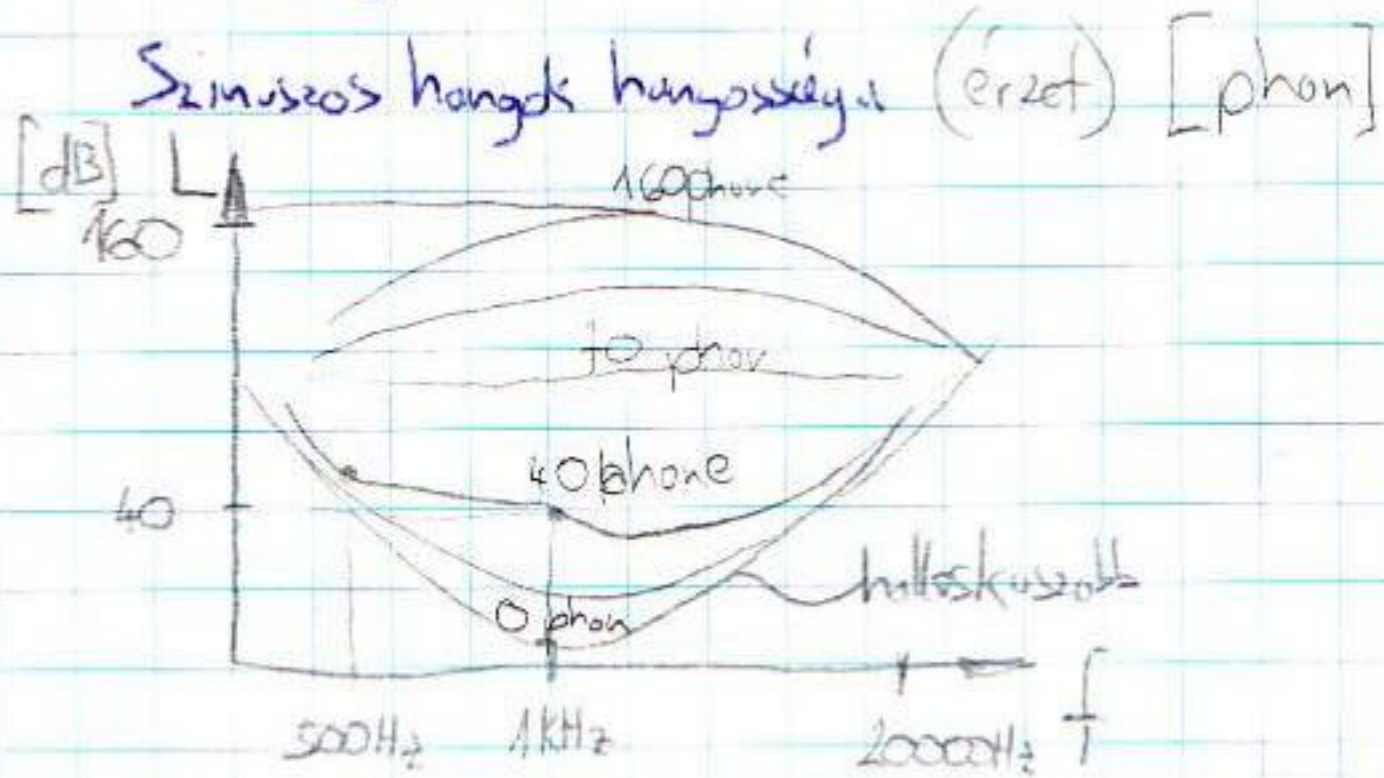 Szinuszos hangok hangossága (érzet) [phon]
[dB] L
160 phone
160
70 phon
40 phone
40
hallásküszöb
0 phon
500Hz 1kHz 20000Hz f